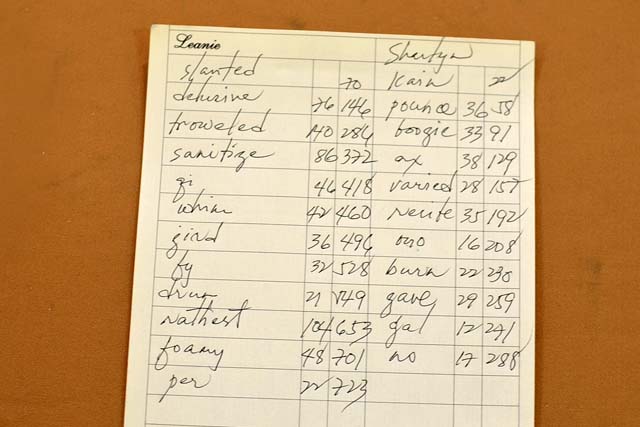 Leanie
slanted 70 Kain 22
delusive 76 146 pounce 36 58
troweled 140 286 boogie 33 91
sanitize 86 372 ax 38 129
qi 46 418 varied 28 157
whim 42 460 35 192
gird 36 496 16 208
fy 32 528 burn 22 230
drum 21 549 gave 29 259
nathest 104 653 gal 12 271
foamy 48 701 no 17 288
per 22 723